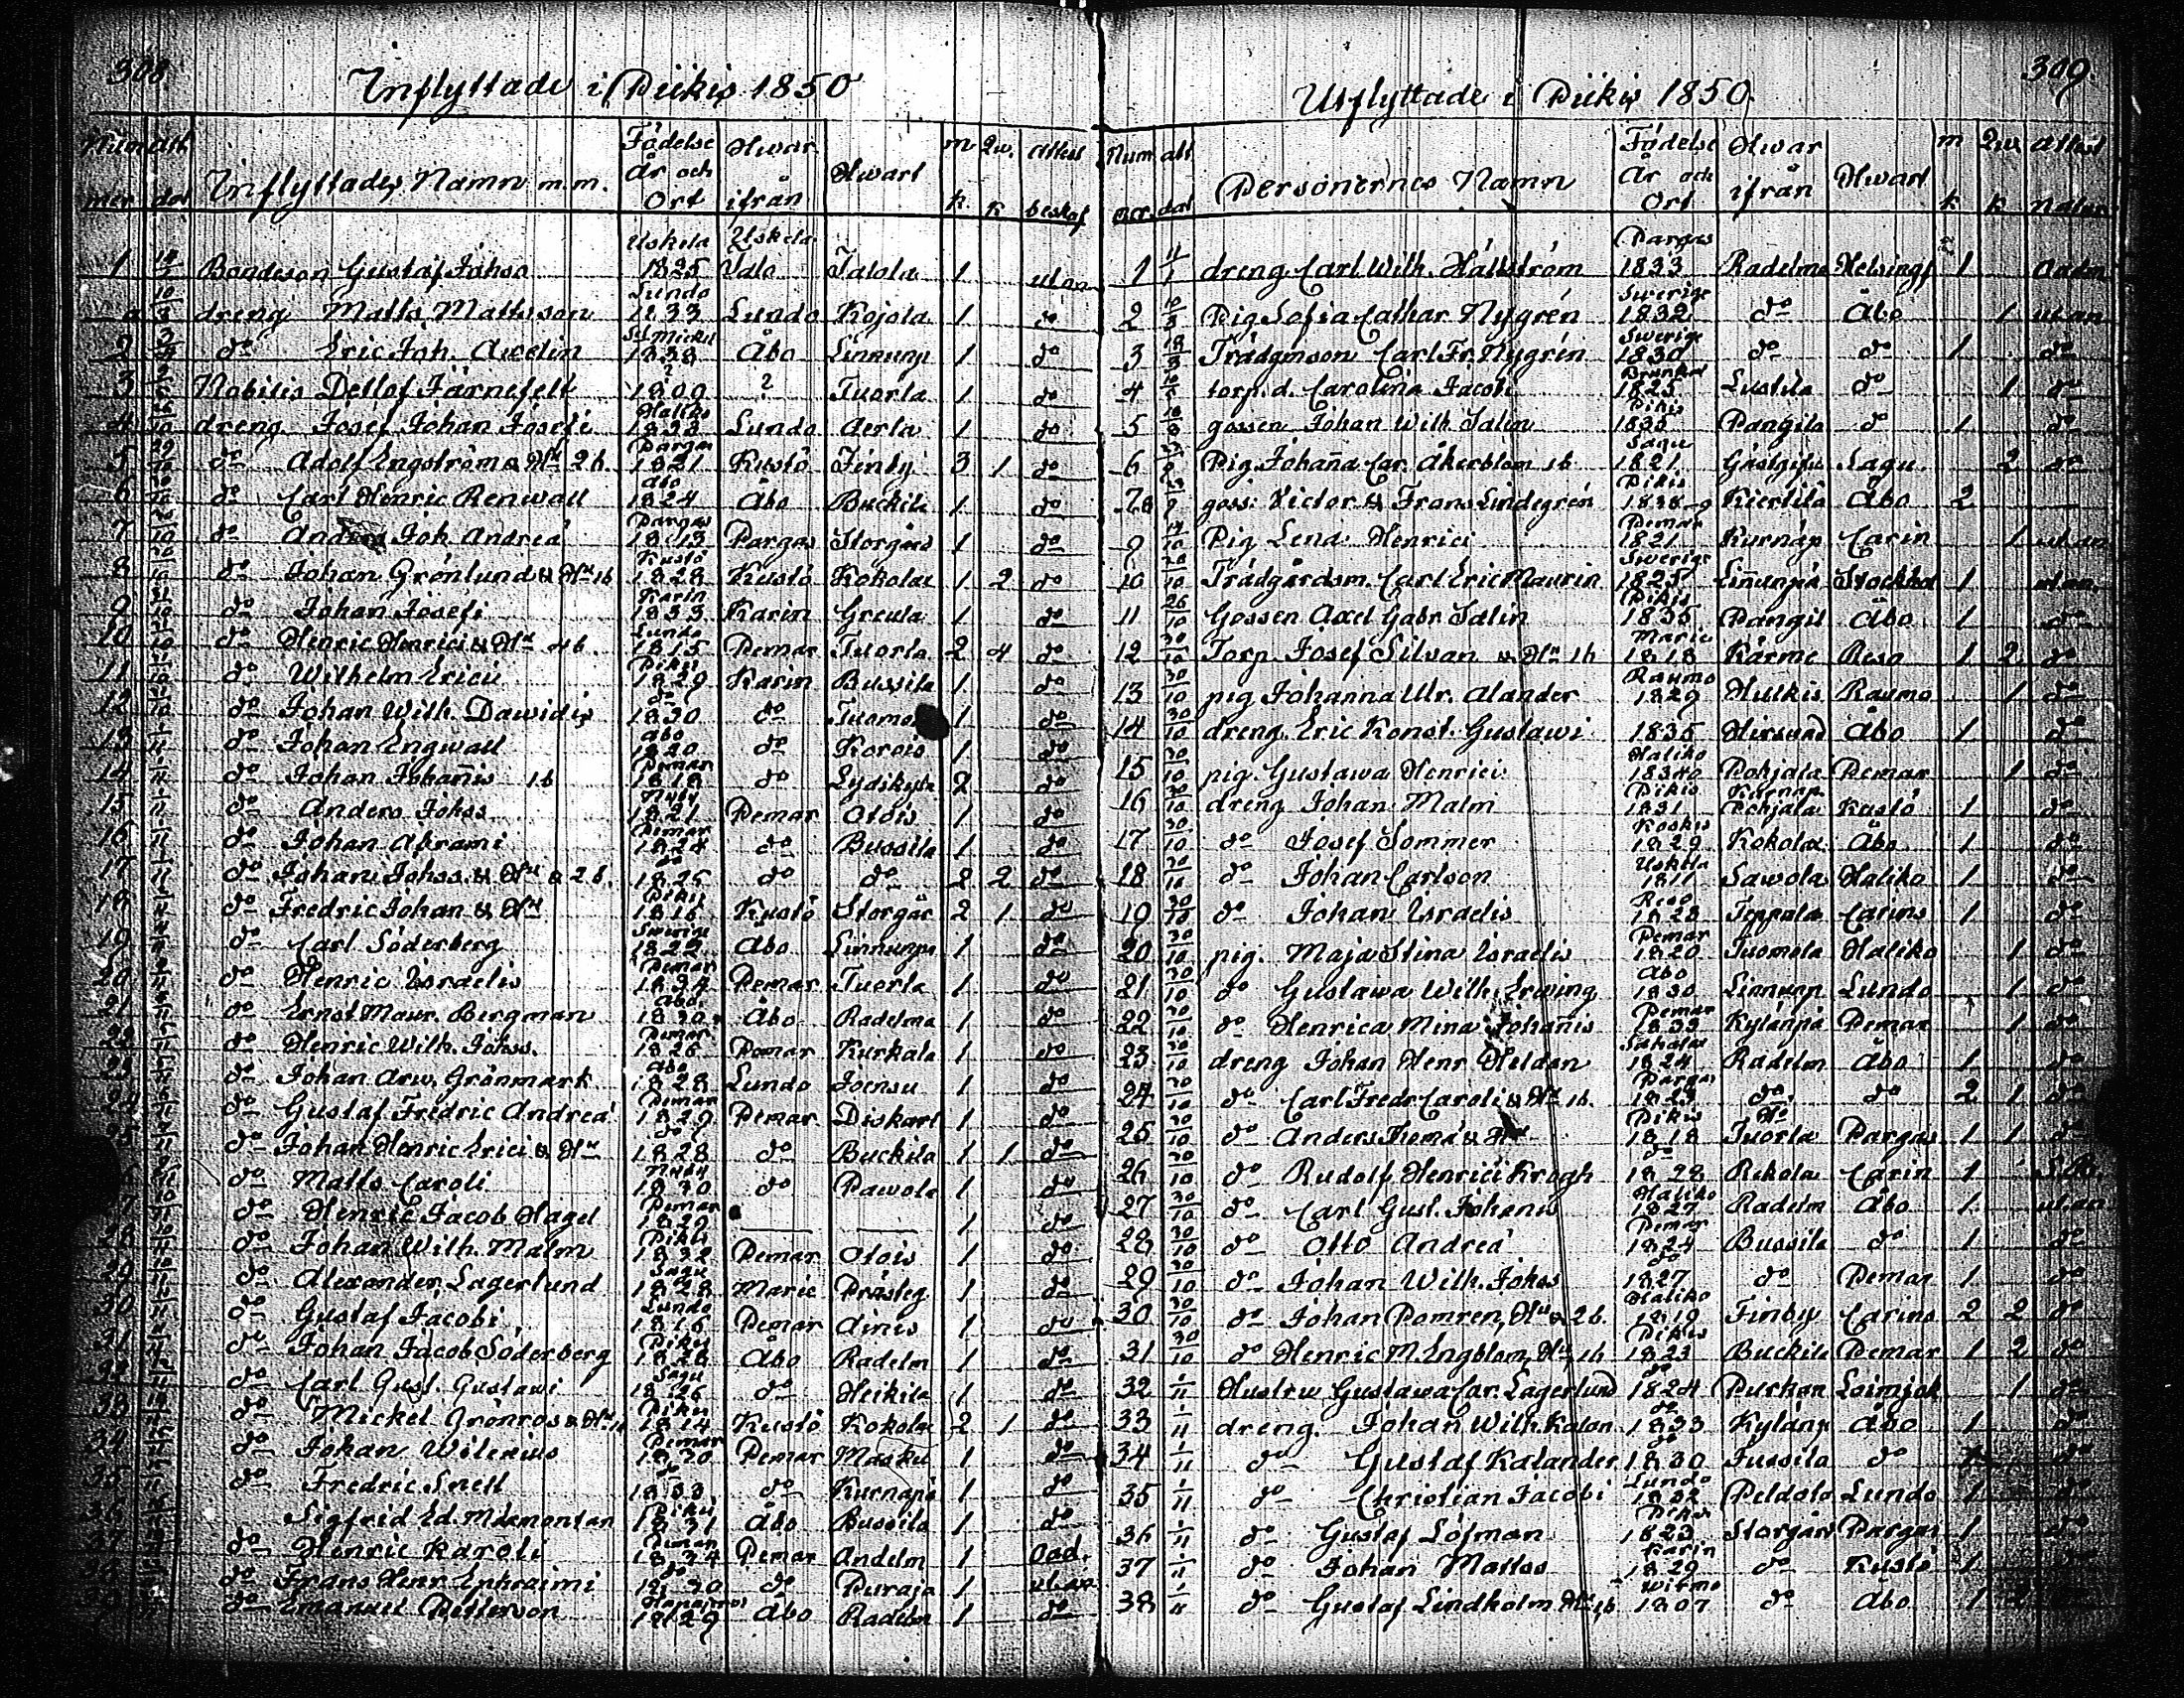 308
Inflyttade i Piikis 1850
Num mer
Att dat
Inflyttades Namn m.m.
Födelse År och Ort
Hwar ifrån
Hwart
m k.
Qw. k
attest beskaf
1 Bondeson Gustaf Johss Uskela 1825 Uskela Salo Talola 1 utan
a 10/3 dreng Matts Mattsson Lundo 1833 Lundo Kojola 1 do
2 do Eric Joh. Axelin St Michel 1838 Åbo Linnunp 1 do
3 Nobilis Detlof Järnefelt ? 1800 ? Tuorla 1 do
4 dreng Josef Johan Josefi Haliko 1833 Lundo Aerla 1 do
5 29/10 do Adolf Engström & Hu 2 b. Pargas 1821 Kustö Finby 3 1 do
6 30/10 do Carl Henric Renwall Åbo 1824 Åbo Buckila 1 do
7 30/10 do Anders Joh. Andreæ Pargas 1813 Pargas Storgård 1 do
8 30/10 do Johan Grönlund & Hu 1b Kustö 1828 Kustö Kokolax 1 2 do
9 31/10 do Johan Josefi Karin 1833 Karin Greula 1 do
10 31/10 do Henric Henrici & Hu 4 b. Lundo 1815 Pemar Tuorla 2 4 do
11 31/10 do Wilhelm Erici Pikis 1829 Karin Bussila 1 do
12 31/10 do Johan Wilh. Dawidis do 1830 do 1 do
13 1/11 do Johan Engwall Åbo 1820 do Korois 1 do
14 1/11 do Johan Johannis 1 b Pemar 1818 do Lydikyla 2 do
15 1/11 do Anders Johss Nuby 1821 Pemar Otois 1 do
16 1/11 do Johan Abrami Pemar 1824 do Bussila 1 do
17 do Johan Johss. & Hu & 2 b. do 1825 do do 2 2 do
18 do Fredric Johan & Hu Pikis 1816 Kustö Storgår 2 1 do
19 do Carl Söderberg Swerige 1822 Åbo Linnunpä 1 do
20 do Henric Israelis Pemar 1834 Pemar Tuorla 1 do
21 do Ernst Maur. Bergman Åbo 1830 Åbo Radelma 1 do
22 do Henric Wilh. Johss. Pemar 1826 Pemar Kurkala 1 do
23 do Johan Arw. Grönmark Åbo 1828 Lundo Joensu 1 do
24 do Gustaf Fredric Andreæ Pemar 1829 Pemar Diskarl 1 do
25 do Johan Henric Erici & Hu do 1828 do Buckila 1 1 do
do Matts Caroli Nuby 1830 do Pawola 1 do
27 do Henric Jacob Hagel Pemar 1829 1 do
28 do Johan Wilh. Malm Pikis 1832 Pemar Otois 1 do
29 do Alexander Lagerlund Sagu 1828 Marie Prästeg 1 do
30 do Gustaf Jacobi Lundo 1816 Pemar Ainis 1 do
31 do Johan Jacob Söderberg Pikis 1828 Åbo Radelm 1 do
32 do Carl Gust. Gustawi Sagu 1826 do Heikila 1 do
33 do Mickel Grönros & Hu Pikis 1814 Kustö Kokolax 2 1 do
34 do Johan Wilenius Pemar 1830 Pemar Masku 1 do
35 do Fredric Snell do 1833 do Kurnapä 1 do
36 Sigfrid Ed. Mdemontan Pikis 1831 Åbo Bussila 1 do
37 do Henric Karoli Pemar 1834 Pemar Andelm 1
do Frans Henr. Ephraimi do 1830 do Puraja 1 utan
do Emanuel Petterson 1829 Åbo Radelm 1 do
309
Utflyttade i Piikis 1850
Num ror.
att dat
Personernes Namn
Födelse År och Ort
Hwar ifrån
Hwart
m k
Qw k
attest
1 dreng Carl Wilh. Hällström Pargas 1833 Radelma Helsingf 1
2 10/3 Pig. Sofia Cathar. Nygrén Swerige 1832 do Åbo 1 utan
3 Trädgmson Carl Fr. Nygrén Swerige 1830 do do 1 do
4 torp. d. Carolina Jacobi 1825 Lustila do 1 do
5 gossen Johan Wilh. Salin Pikis 1835 Pangila do 1 do
6 Pig. Johanna Car. Åkerblom 1b Sagu 1821 Gästgifw. Sagu. 2 do
goss: Victor & Frans Lindegrén Pikis 1838-9 Kiertilä Åbo 2
9 Pig Lena Henrici Pemar 1821 Kurnäp Carin 1 utan
10 Trädgårdsm. Carl Eric Maurin Swerige 1825 Linnunpä Stockhol 1 utan
11 26/10 Gossen Axel Gabr. Salin Pikis 1835 Pangil Åbo 1 do
12 30/10 Torp. Josef Silvan & Hu 1b Marie 1818 Kärme Reso 1 2 do
13 30/10 pig Johanna Ulr. Alander Raumo 1829 Hulkis Raumo 1 do
14 30/10 dreng Eric Konst. Gustawi 1835 Hirsund Åbo 1 do
15 30/10 pig. Gustawa Henrici Haliko Pohjala Pemar 1 do
16 30/10 dreng Johan Malm Pikis 1831 Kurnap Pohjala Kustö 1 do
17 30/10 do Josef Sommer Koskis 1829 Kokolax Åbo 1 do
18 30/10 do Johan Carlson Uskela 1811 Sawola Haliko 1 do
19 30/10 do Johan Israelis Reso 1828 Toppala Carins 1 do
20 30/10 pig. Maja Stina Israelis Pemar 1820 Tuomola Haliko 1 do
21 30/10 do Gustawa Wilh. Erwing Åbo 1830 Linnunp Lundo 1 do
22 30/10 do Henrica Mina Johannis Pemar 1833 Kylänpä Pemar 1 do
23 30/10 dreng Johan Henr. Heldan 1824 Radelm Åbo 1 do
24 30/10 do Carl Fredr. Caroli & Hu 1b. Pargas 1823 do do 2 1 do
25 30/10 do Anders Thomæ & Hu Pikis 1818 Tuorla Pargas 1 1 do
26 30/10 do Rudolf Henrici Krogh do 1828 Rekola Carin 1
27 30/10 do Carl Gust. Johanis Haliko 1827 Radelm Åbo 1 utan
28 30/10 do Otto Andreæ Pemar 1824 Bussila do 1 do
29 30/10 do Johan Wilh. Johss do 1827 do Pemar 1 do
30 30/10 do Johan Pomren, Hu & 2 b. Haliko 1819 Finby Carins 2 2 do
31 30/10 do Henric M. Engblom, Hu 1b Pikis 1823 Buckila Pemar 1 2 do
32 1/11 Hustru Gustawa Car. Lagerlund do 1824 Purhan Loimjok 1 do
33 1/11 dreng. Johan Wilh. Kalan do 1833 Kylänp Åbo 1 do
34 1/11 do Gustaf Kalander do 1830 Jussila do 1 do
35 1/11 do Christian Jacobi Lundo 1832 Peldola Lundo 1 do
36 1/11 do Gustaf Löfman Pikis 1823 Storgård Pargas 1 do
37 1/11 do Johan Mattss Karin 1829 do Kustö 1 do
38 1/11 do Gustaf Lindholm Hu 1b Witmo 1807 do Åbo 1 2